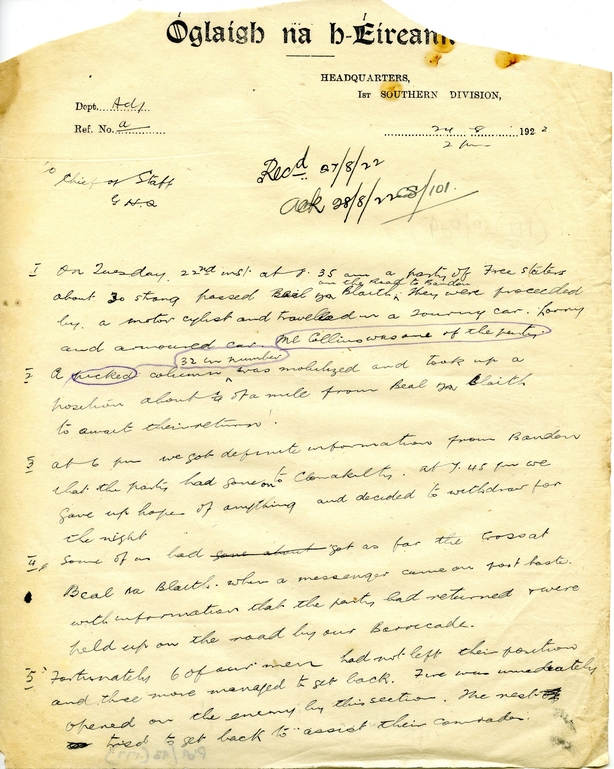 Óglaigh na h-Éireann
HEADQUARTERS,
1ST SOUTHERN DIVISION,
Dept. Adj
Ref. No. a
24 8 1922
2 pm
To
Chief of Staff
G.H.Q
Recd. 27/8/22
Ack 28/8/22 CS/101.
1 On Tuesday, 22nd inst. at 8.35 am a party of Free Staters
on the Road to Bandon
about 30 strong passed Beal na Blaith, They were proceeded
by a motor cylist and travelled in a Touring car. Lorry
and armoured car. Ml Collins was one of the party
32 in number
2 A picked column was mobilized and took up a
position about ¼ of a mile from Beal na Blaith
to await their return.
3 At 6 pm we got definite information from Bandon
that the party had gone on to Clonakilty. At 7.45 pm we
gave up hope of anything and decided to withdraw for
the night
4 Some of us had gone about got as far the Cross at
Beal na Blaith. when a messenger came on post haste
with information that the party had returned & were
held up on the road by our Barricade.
5 Fortunately 6 of our men had not left their position
and three more managed to get back. Fire was immediately
opened on the enemy by this section. The rest
tried to get back to assist their comrades.